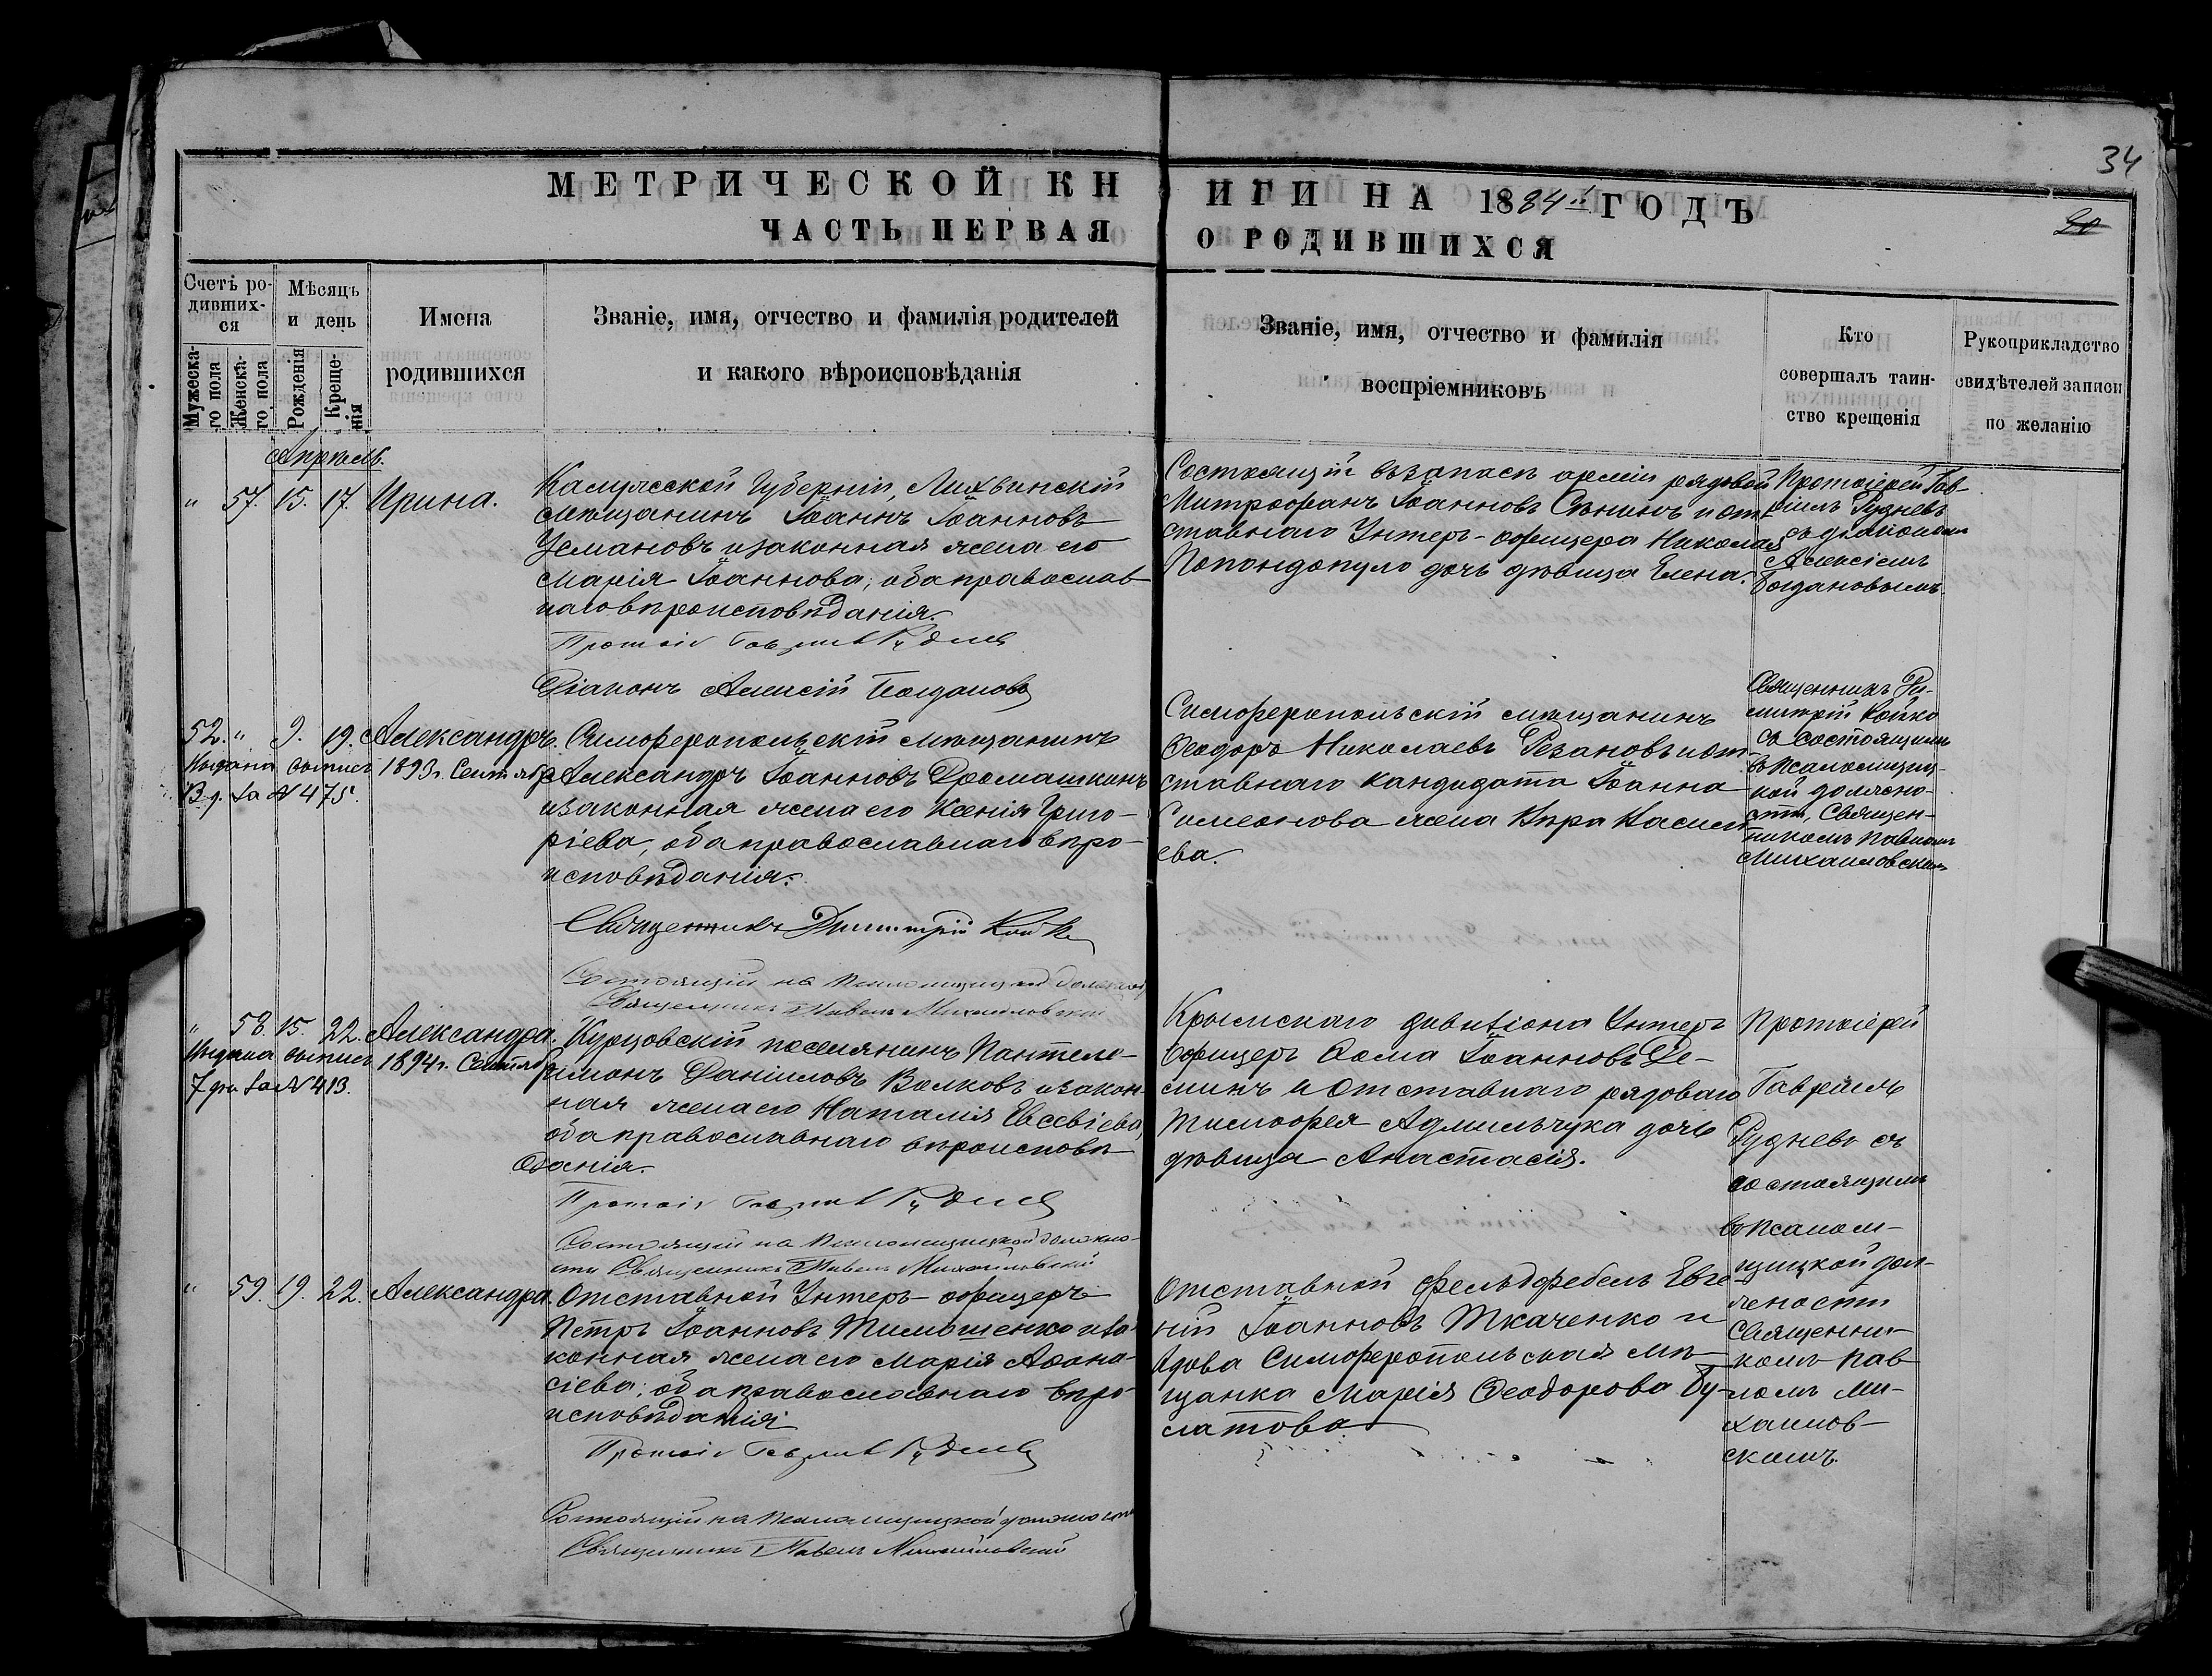 34
МЕТРИЧЕСКОЙ КНИГИ НА 1884й ГОДЪ
ЧАСТЬ ПЕРВАЯ О РОДИВШИХСЯ
Счетъ родившихся
Мужескаго пола
Женскаго пола
Мѣсяцъ и день
Рожденія
Крещенія
Имена
родившихся
Званіе, имя, отчество и фамилія родителей
и какого вѣроисповѣданія
Званіе, имя, отчество и фамилія
воспріемниковъ
Кто
совершалъ таин-
ство крещенія
Рукоприкладство
свидѣтелей записи
по желанію
Апрѣль.
" 57. 15. 17. Ирина.
Калужской Губерніи, Лихвинскій
мѣщанинъ Іоаннъ Іоанновъ
Усмановъ и законная жена его
Марія Іоаннова; оба православ-
наго вѣроисповѣданія.
Діаконъ Алексій Богдановъ
Состоящій въ запасѣ арміи рядовой
Митрофанъ Іоанновъ Сѣнинъ и от-
ставнаго Унтеръ-офицера Николая
Попондопуло дочь дѣвица Елена.
Протоіерей Гав-
ріилъ Рудневъ
съ діакономъ
Алексіемъ
Богдановымъ.
52. " 9. 19. Александръ.
Выдана выпись 1893 г. Сентября
13 д. за № 475.
Симферопольскій мѣщанинъ
Александръ Іоанновъ Дромашкинъ
и законная жена его Ксенія Григо-
ріева, оба православнаго вѣро-
исповѣданія.
Священникъ Димитрій Койко
Состоящій на псаломщицкой должности
Священникъ Павелъ Михайловскій
Симферопольскій мѣщанинъ
Ѳеодоръ Николаевъ Резановъ и от-
ставнаго кандидата Іоанна
Симеонова жена Вѣра
ева.
Священникъ Ди-
митрій Койко
съ состоящимъ
въ псаломщиц-
кой должно-
сти, Священ-
никомъ Павломъ
Михайловскимъ
" 58. 15. 22. Александра.
Выдана выпись 1894 г. Сентября
7 дня за № 413.
Курцовскій поселянинъ Пантеле-
имонъ Даніиловъ Волковъ и закон-
ная жена его Наталія Евсевіева,
оба православнаго вѣроисповѣ-
данія.
Состоящій на псаломщицкой должно-
сти Священникъ Павелъ Михайловскій
Крымскаго дивизіона Унтеръ
Офицеръ Ѳома Іоанновъ Де-
минъ и отставнаго рядоваго
Тимофея Адмильчука дочь
дѣвица Анастасія.
Протоіерей
Гавріилъ
Рудневъ съ
состоящимъ
въ псалом-
щицкой дол-
жности
Священни-
комъ Пав-
ломъ Ми-
хайлов-
скимъ.
" 59. 19. 22. Александра.
Отставной Унтеръ-офицеръ
Петръ Іоанновъ Тимошенко и за-
конная жена его Марія Аѳана-
сіева; оба православнаго вѣро-
исповѣданія
Состоящій на псаломщицкой должности
Священникъ Павелъ Михайловскій
Отставной фельдфебель Евге-
ній Іоанновъ Ткаченко и
вдова Симферопольская мѣ-
щанка Марія Ѳеодорова Бу-
латова